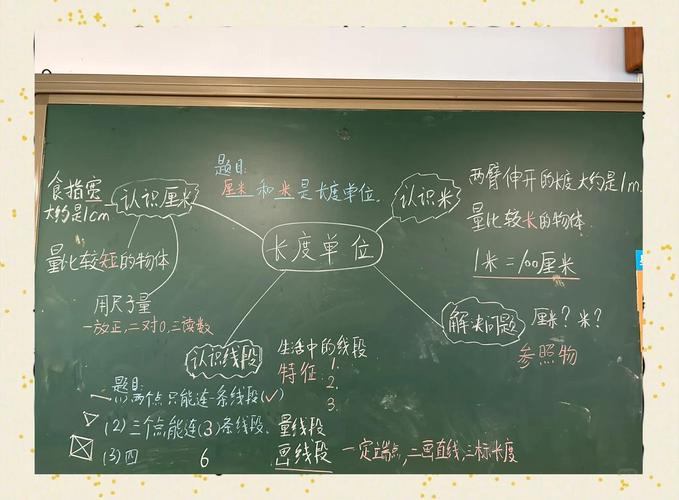 题目:
厘米和米是长度单位.
食指宽
大约是1cm
认识厘米
量比较短的物体
用尺子量
一放正,二对0,三读数
长度单位
认识米
两臂伸开的长度大约是1m.
量比较长的物体
1米=100厘米
解决问题
厘米?米?
参照物
认识线段
生活中的线段
特征:1.
2.
3.
量线段
画线段 一定端点,二画直线,三标长度
题目:
(1)两个点只能连一条线段(✓)
(2)三个点能连(3)条线段.
(3)四 6